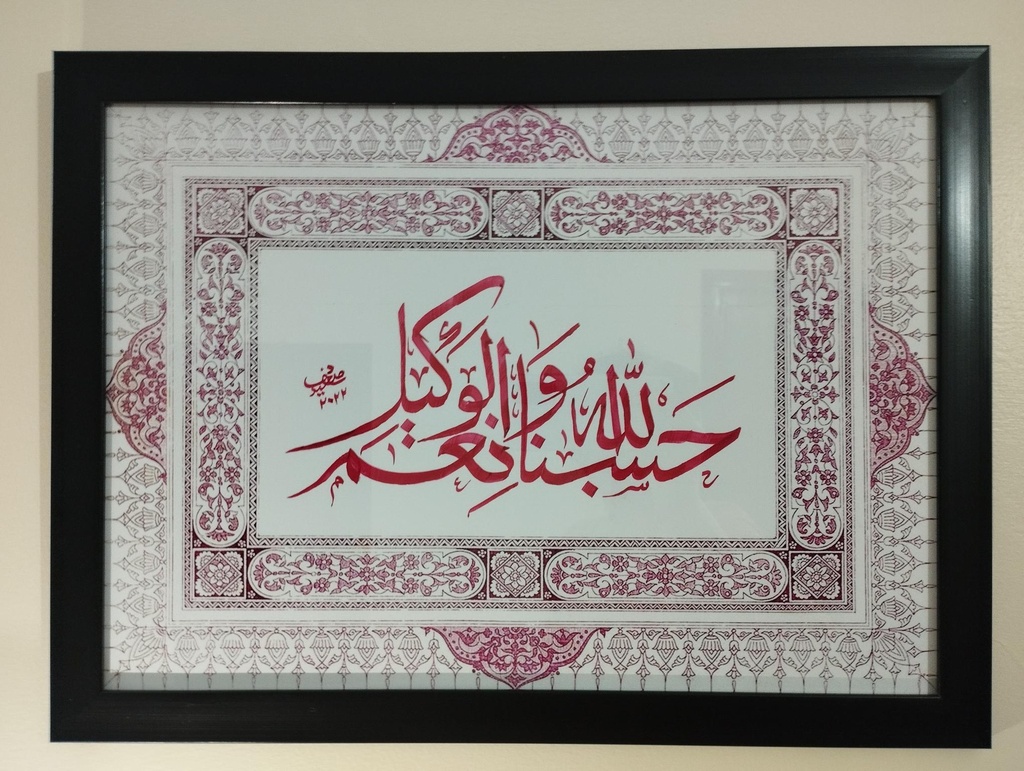 حسبنا الله ونعم الوكيل
٢٠٢٢